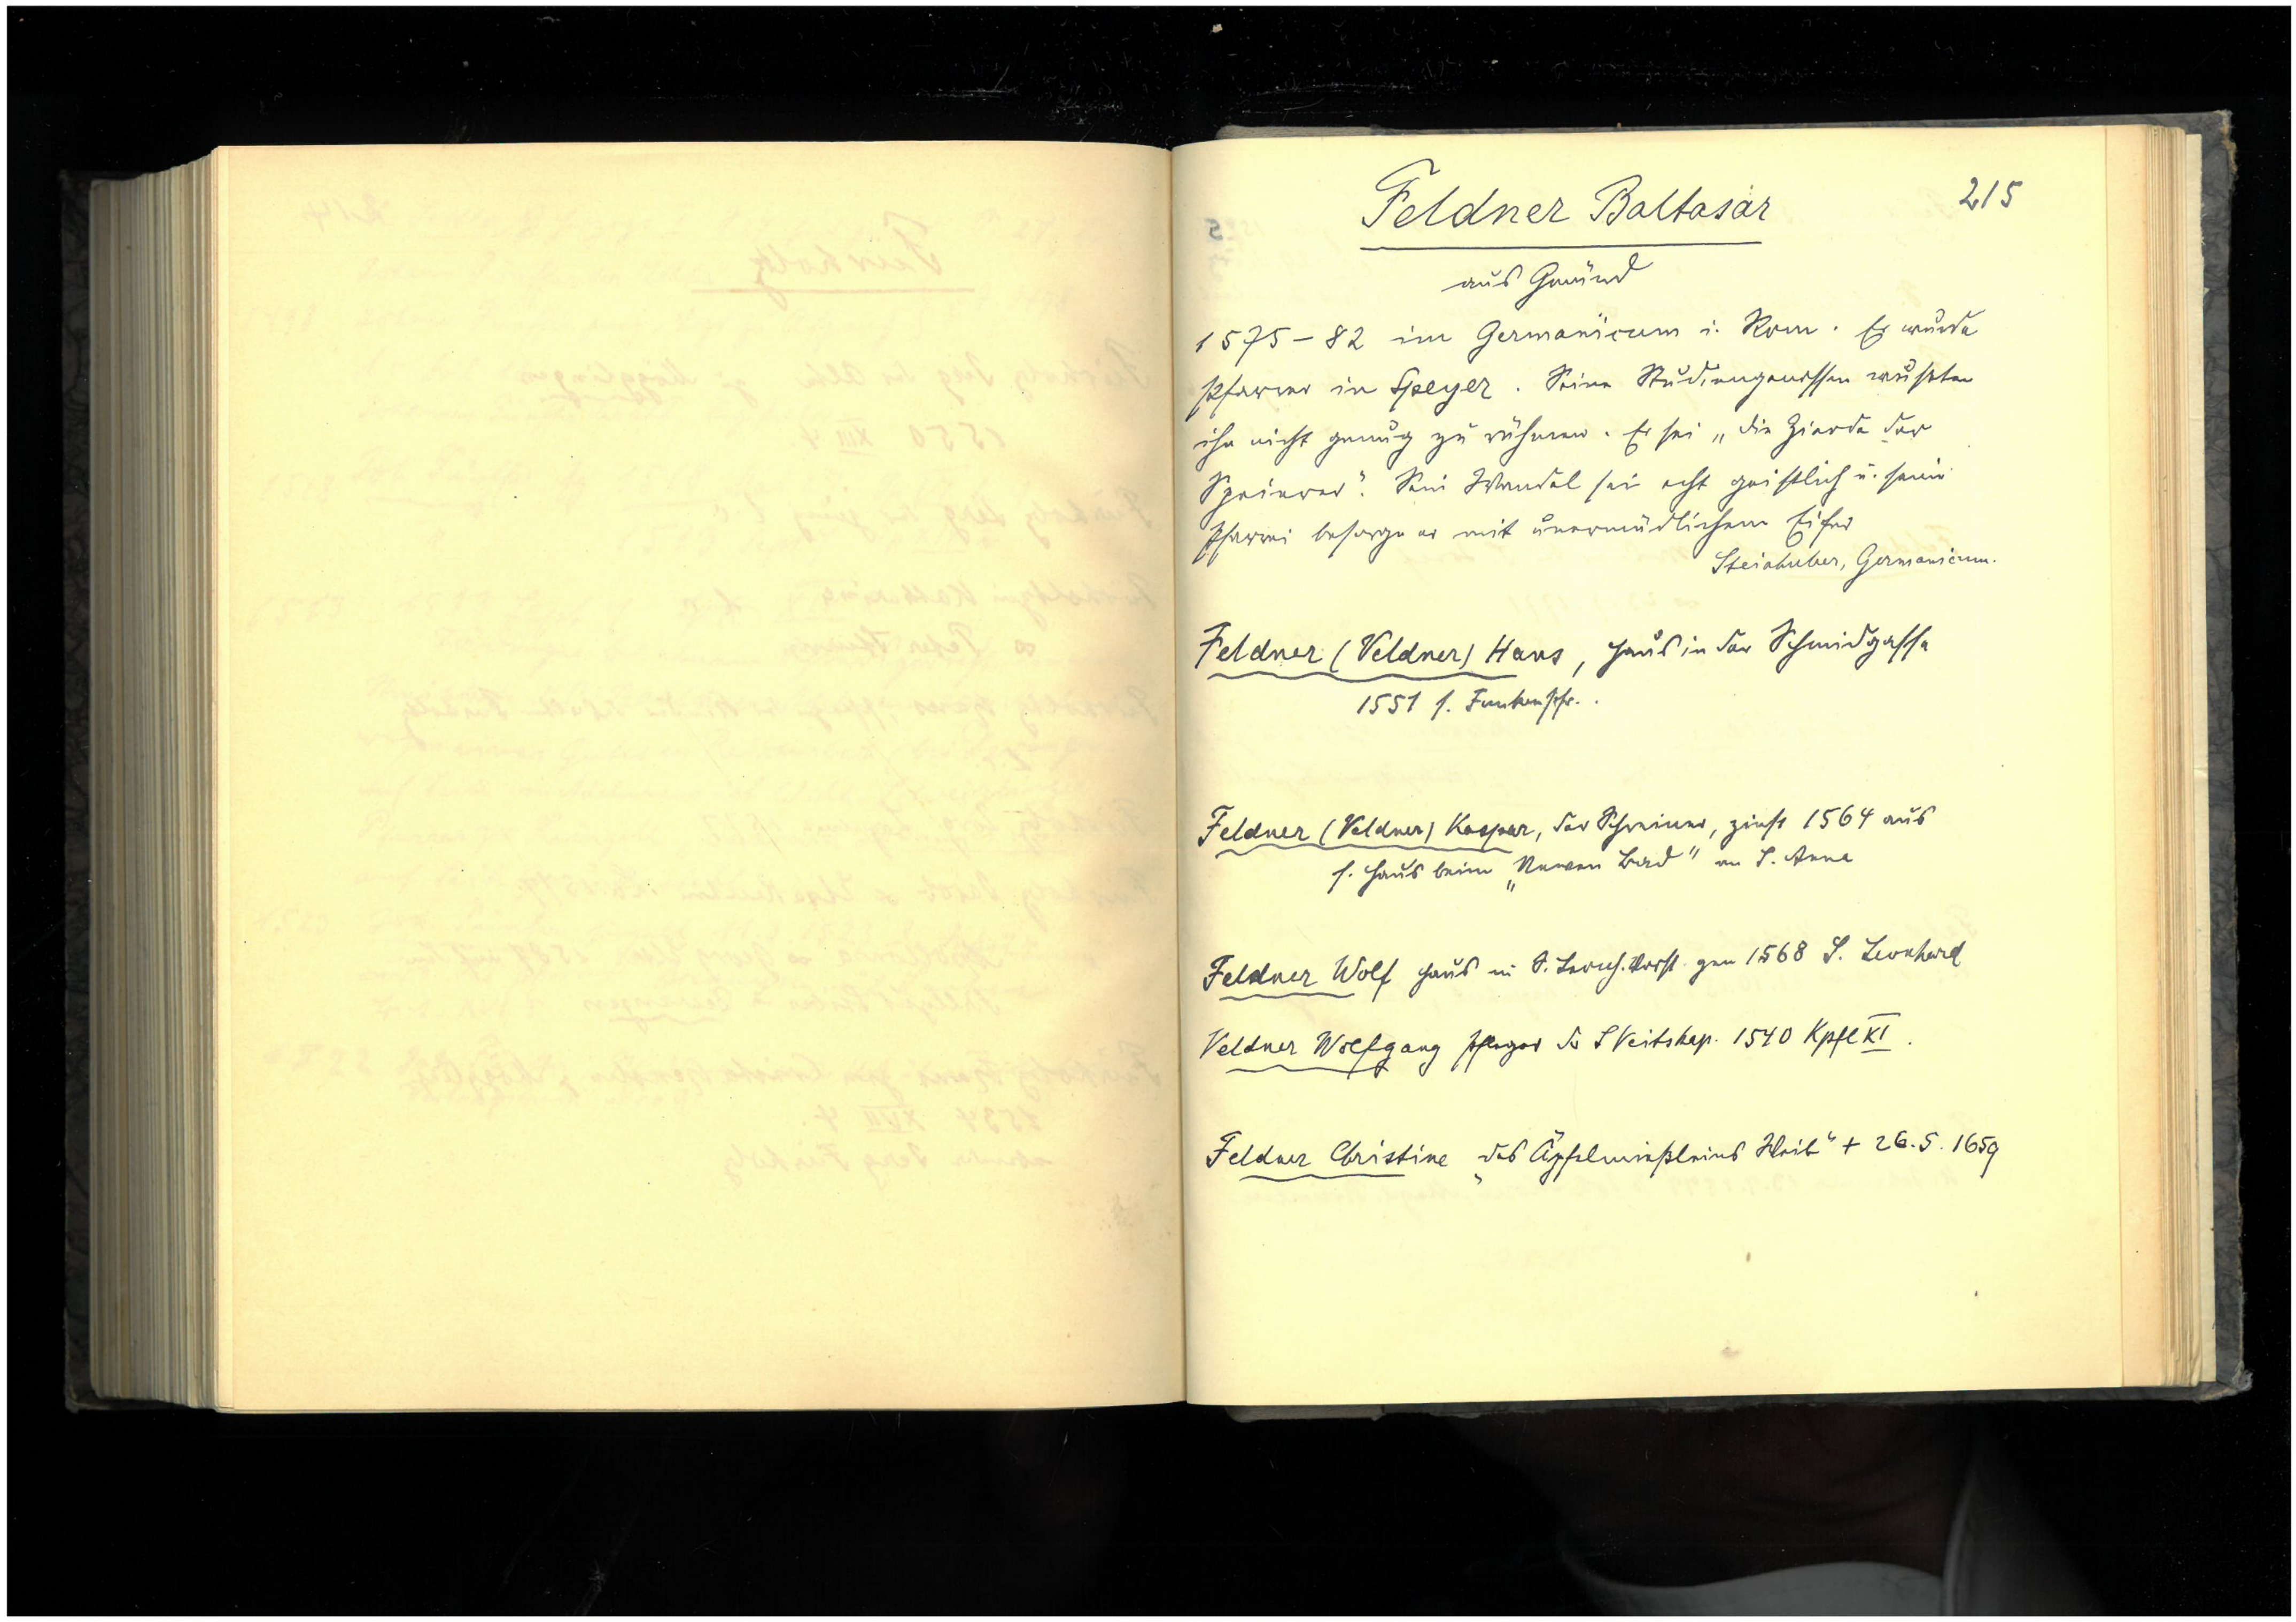 215
Feldner Baltasar
aus Gmünd
1575-82 im Germanicum i. Rom. Er wurde
Pfarrer in Speyer. Seine Studiengenossen wußten
ihn nicht genug zu rühmen. Er sei „die Zierde der
Speierer". Sein Wandel sei echt geistlich u. seine
Pfarrei besorge er mit unermüdlichem Eifer
Steinhuber, Germanicum.
Feldner (Veldner) Hans, Haus in der Schmidgasse
1551 s.
Feldner (Veldner) Kaspar, der Schreiner, zinst 1564 aus
s. Haus beim „Newen Bad" an S. Anna
Feldner Wolf Haus in S. gen 1568 S. Leonhard
Veldner Wolfgang Pfleger der S Veitskap. 1540 Kpfl XI.
Feldner Christine „des Weib" + 26.5.1659